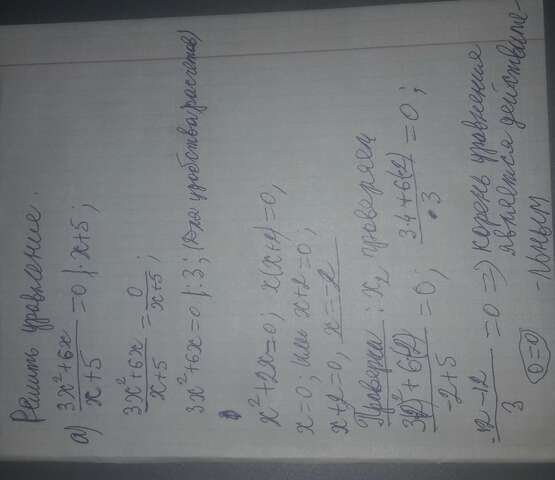 Решить уравнение.
а) (3x²+6x)/(x+5) = 0 |: x+5;
(3x²+6x)/(x+5) = 0/(x+5);
3x²+6x=0 |:3; (для удобства расчетов)
x²+2x=0; x(x+2)=0,
x=0; или x+2=0;
x+2=0, x=-2
Проверка: x₂ проверяем
(3(2)²+6(-2))/(-2+5) = 0; (3·4+6(-2))/3 = 0;
(12-12)/3 = 0 => корень уравнения
является действите-
0=0 -льным